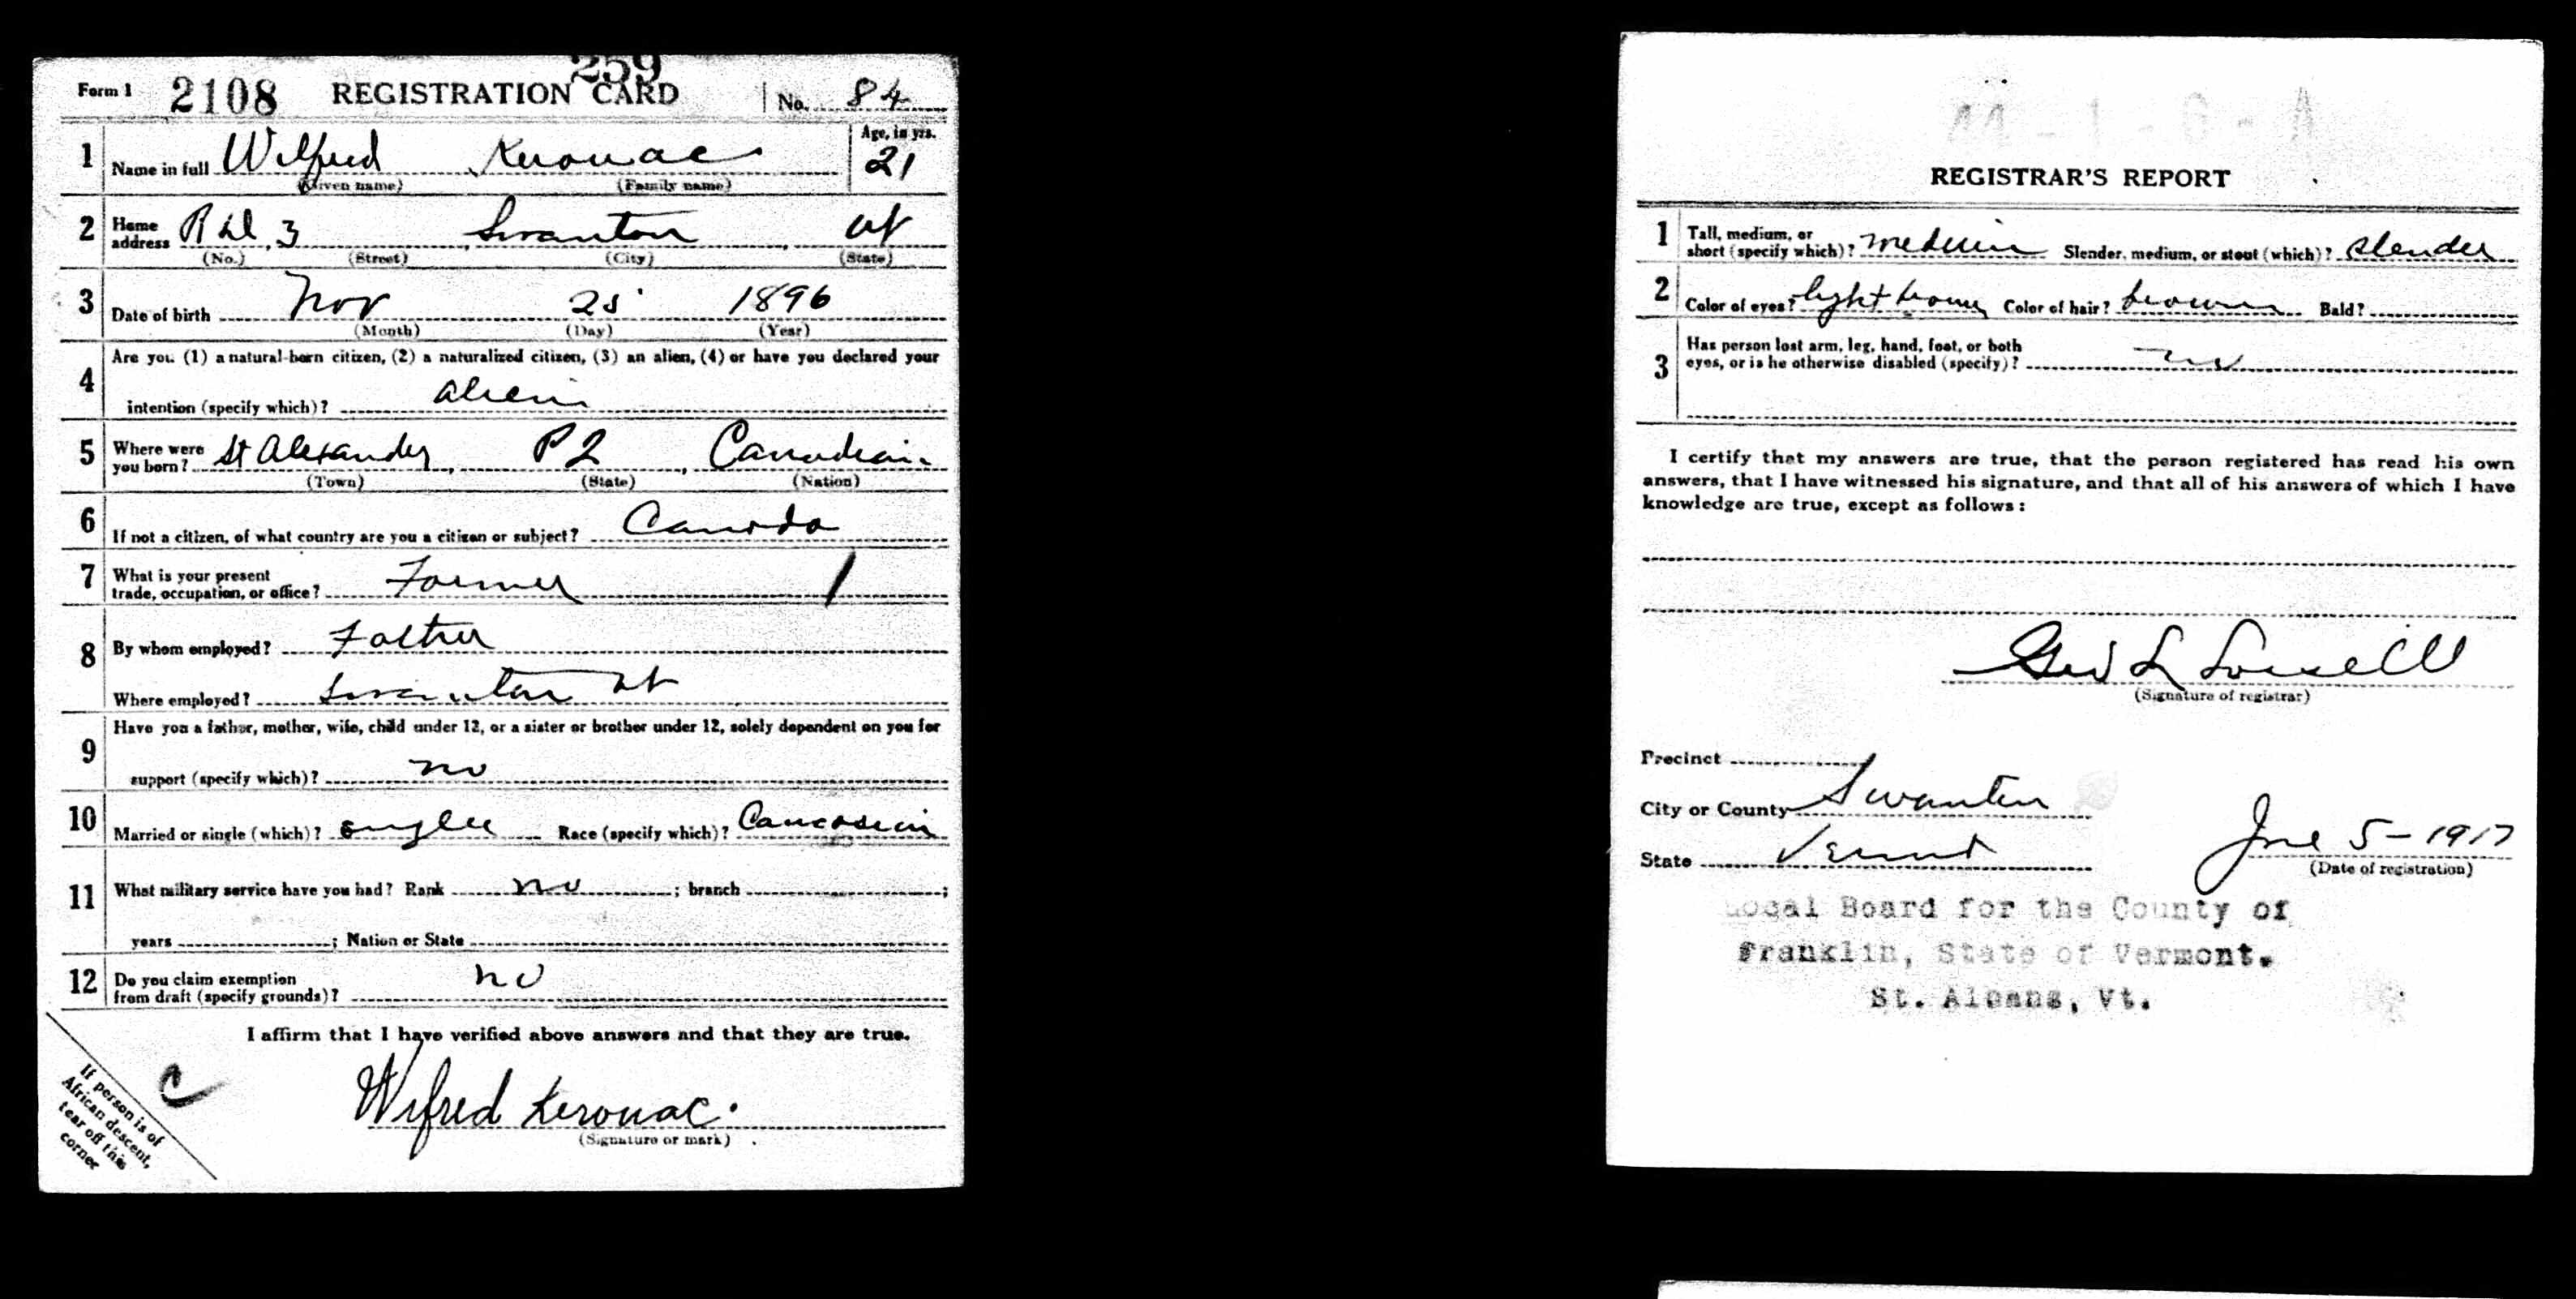 259
Form 1 2108 REGISTRATION CARD No. 84
1 Name in full Wilfred Kerouac Age, in yrs. 21
(Given name) (Family name)
2 Home address R F D 3 Swanton Vt
(No.) (Street) (City) (State)
3 Date of birth Nov 25 1896
(Month) (Day) (Year)
4 Are you (1) a natural-born citizen, (2) a naturalized citizen, (3) an alien, (4) or have you declared your
intention (specify which)? alien
5 Where were you born? St Alexander P 2 Canadian
(Town) (State) (Nation)
6 If not a citizen, of what country are you a citizen or subject? Canada
7 What is your present
trade, occupation, or office? Farmer
8 By whom employed? Father
Where employed? Swanton Vt
9 Have you a father, mother, wife, child under 12, or a sister or brother under 12, solely dependent on you for
support (specify which)? no
10 Married or single (which)? single Race (specify which)? Caucasian
11 What military service have you had? Rank no ; branch ;
years ; Nation or State
12 Do you claim exemption
from draft (specify grounds)? no
I affirm that I have verified above answers and that they are true.
Wifred Kerouac.
(Signature or mark)
If person is of
African descent,
tear off this
corner
C
REGISTRAR'S REPORT
1 Tall, medium, or
short (specify which)? medium Slender, medium, or stout (which)? slender
2 Color of eyes? light brown Color of hair? brown Bald?
3 Has person lost arm, leg, hand, foot, or both
eyes, or is he otherwise disabled (specify)? no
I certify that my answers are true, that the person registered has read his own
answers, that I have witnessed his signature, and that all of his answers of which I have
knowledge are true, except as follows:
Geo L
(Signature of registrar)
Precinct
City or County Swanton
State Vermont
June 5 - 1917
(Date of registration)
Local Board for the County of
Franklin, State of Vermont.
St. Albans, Vt.